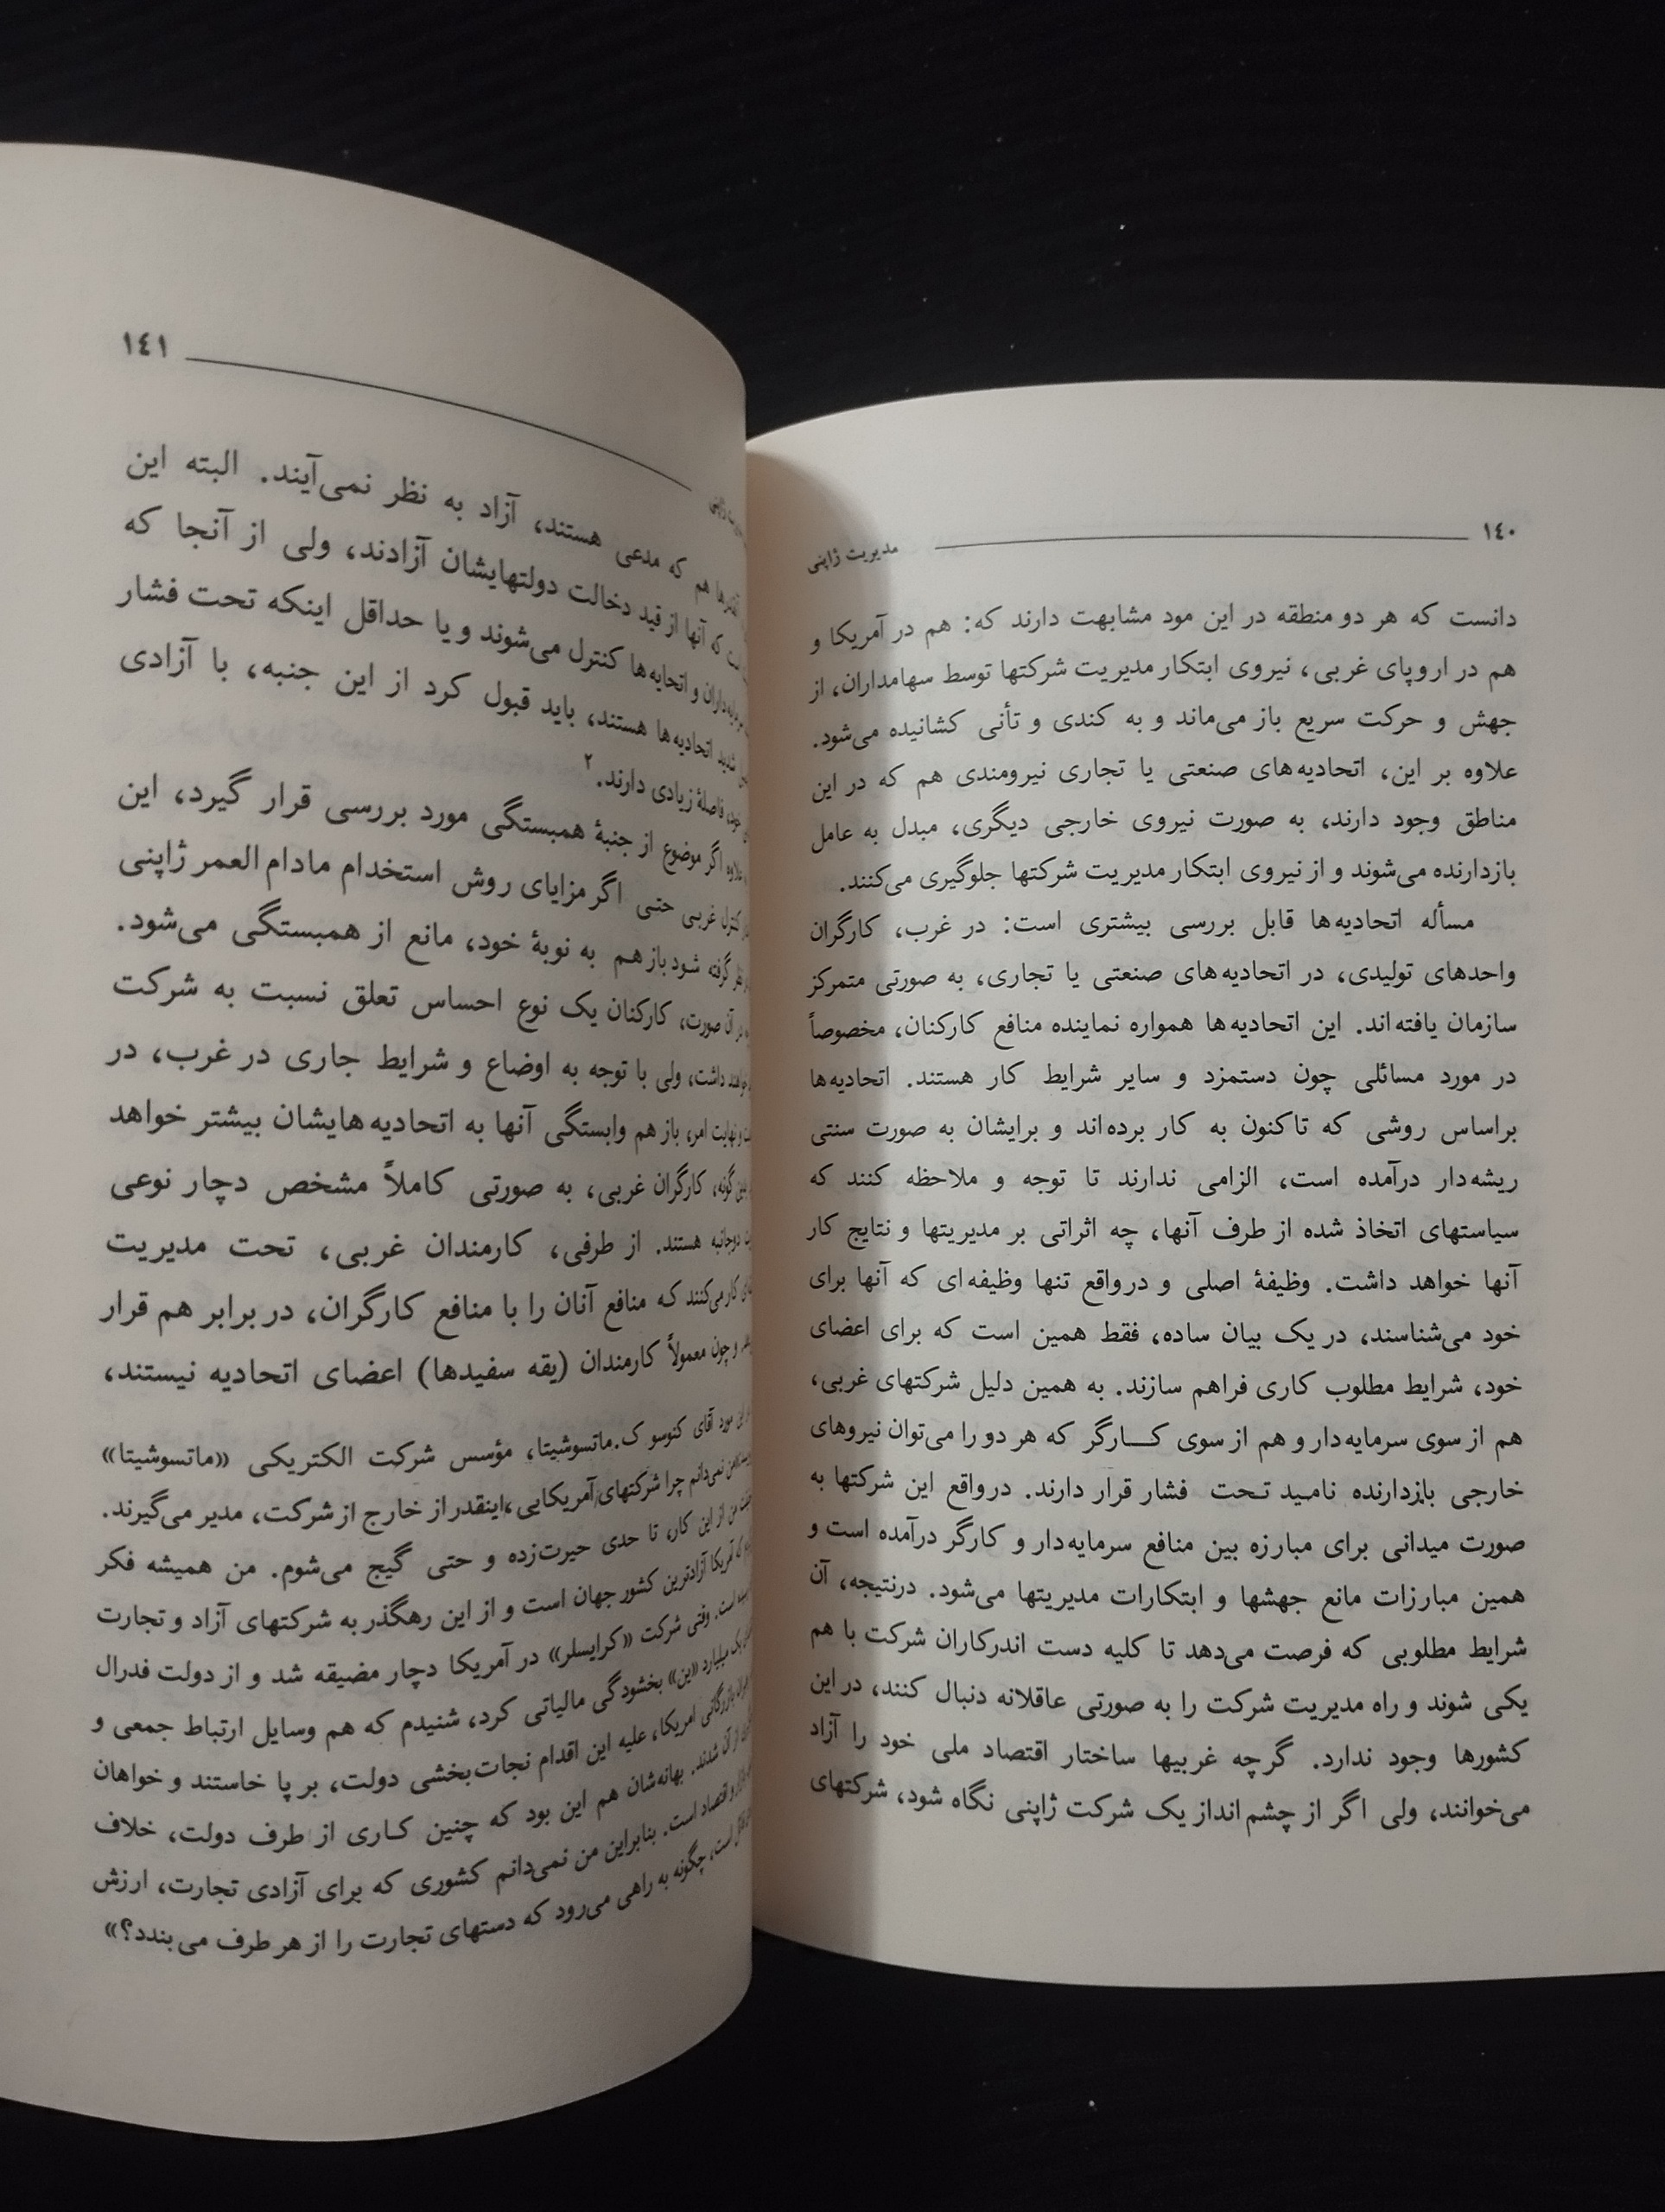 ١٤٠
مدیریت ژاپنی
دانست که هر دو منطقه در این مود مشابهت دارند که: هم در آمریکا و
هم در اروپای غربی، نیروی ابتکار مدیریت شرکتها توسط سهامداران، از
جهش و حرکت سریع باز می‌ماند و به کندی و تأنی کشانیده می‌شود.
علاوه بر این، اتحادیه‌های صنعتی یا تجاری نیرومندی هم که در این
مناطق وجود دارند، به صورت نیروی خارجی دیگری، مبدل به عامل
بازدارنده می‌شوند و از نیروی ابتکار مدیریت شرکتها جلوگیری می‌کنند.
مسأله اتحادیه‌ها قابل بررسی بیشتری است: در غرب، کارگران
واحدهای تولیدی، در اتحادیه‌های صنعتی یا تجاری، به صورتی متمرکز
سازمان یافته‌اند. این اتحادیه‌ها همواره نماینده منافع کارکنان، مخصوصاً
در مورد مسائلی چون دستمزد و سایر شرایط کار هستند. اتحادیه‌ها
براساس روشی که تاکنون به کار برده‌اند و برایشان به صورت سنتی
ریشه‌دار درآمده است، الزامی ندارند تا توجه و ملاحظه کنند که
سیاستهای اتخاذ شده از طرف آنها، چه اثراتی بر مدیریتها و نتایج کار
آنها خواهد داشت. وظیفهٔ اصلی و درواقع تنها وظیفه‌ای که آنها برای
خود می‌شناسند، در یک بیان ساده، فقط همین است که برای اعضای
خود، شرایط مطلوب کاری فراهم سازند. به همین دلیل شرکتهای غربی،
هم از سوی سرمایه‌دار و هم از سوی کـــارگر که هر دو را می‌توان نیروهای
خارجی بازدارنده نامید تحت فشار قرار دارند. درواقع این شرکتها به
صورت میدانی برای مبارزه بین منافع سرمایه‌دار و کارگر درآمده است و
همین مبارزات مانع جهشها و ابتکارات مدیریتها می‌شود. درنتیجه، آن
شرایط مطلوبی که فرصت می‌دهد تا کلیه دست اندرکاران شرکت با هم
یکی شوند و راه مدیریت شرکت را به صورتی عاقلانه دنبال کنند، در این
کشورها وجود ندارد. گرچه غربیها ساختار اقتصاد ملی خود را آزاد
می‌خوانند، ولی اگر از چشم انداز یک شرکت ژاپنی نگاه شود، شرکتهای
١٤١
هم که مدعی هستند، آزاد به نظر نمی‌آیند. البته این
که آنها از قید دخالت دولتهایشان آزادند، ولی از آنجا که
و اتحایه‌ها کنترل می‌شوند و یا حداقل اینکه تحت فشار
شدید اتحادیه‌ها هستند، باید قبول کرد از این جنبه، با آزادی
فاصلهٔ زیادی دارند.٢
اگر موضوع از جنبهٔ همبستگی مورد بررسی قرار گیرد، این
کنترل غربی حتی اگر مزایای روش استخدام مادام العمر ژاپنی
گرفته شود باز هم به نوبهٔ خود، مانع از همبستگی می‌شود.
آن صورت، کارکنان یک نوع احساس تعلق نسبت به شرکت
داشت، ولی با توجه به اوضاع و شرایط جاری در غرب، در
نهایت امر، باز هم وابستگی آنها به اتحادیه‌هایشان بیشتر خواهد
گونه، کارگران غربی، به صورتی کاملاً مشخص دچار نوعی
دوجانبه هستند. از طرفی، کارمندان غربی، تحت مدیریت
کار می‌کنند که منافع آنان را با منافع کارگران، در برابر هم قرار
و چون معمولاً کارمندان (یقه سفیدها) اعضای اتحادیه نیستند،
مورد آقای کنوسو ک.ماتسوشیتا، مؤسس شرکت الکتریکی «ماتسوشیتا»
من نمی‌دانم چرا شرکتهای آمریکایی، اینقدر از خارج از شرکت، مدیر می‌گیرند.
من از این کار، تا حدی حیرت‌زده و حتی گیج می‌شوم. من همیشه فکر
آمریکا آزادترین کشور جهان است و از این رهگذر به شرکتهای آزاد و تجارت
است. وقتی شرکت «کرایسلر» در آمریکا دچار مضیقه شد و از دولت فدرال
یک میلیارد «ین» بخشودگی مالیاتی کرد، شنیدم که هم وسایل ارتباط جمعی و
بازرگانی امریکا، علیه این اقدام نجات‌بخشی دولت، بر پا خاستند و خواهان
از آن شدند. بهانه‌شان هم این بود که چنین کاری از طرف دولت، خلاف
اقتصاد است. بنابراین من نمی‌دانم کشوری که برای آزادی تجارت، ارزش
است، چگونه به راهی می‌رود که دستهای تجارت را از هر طرف می‌بندد؟»